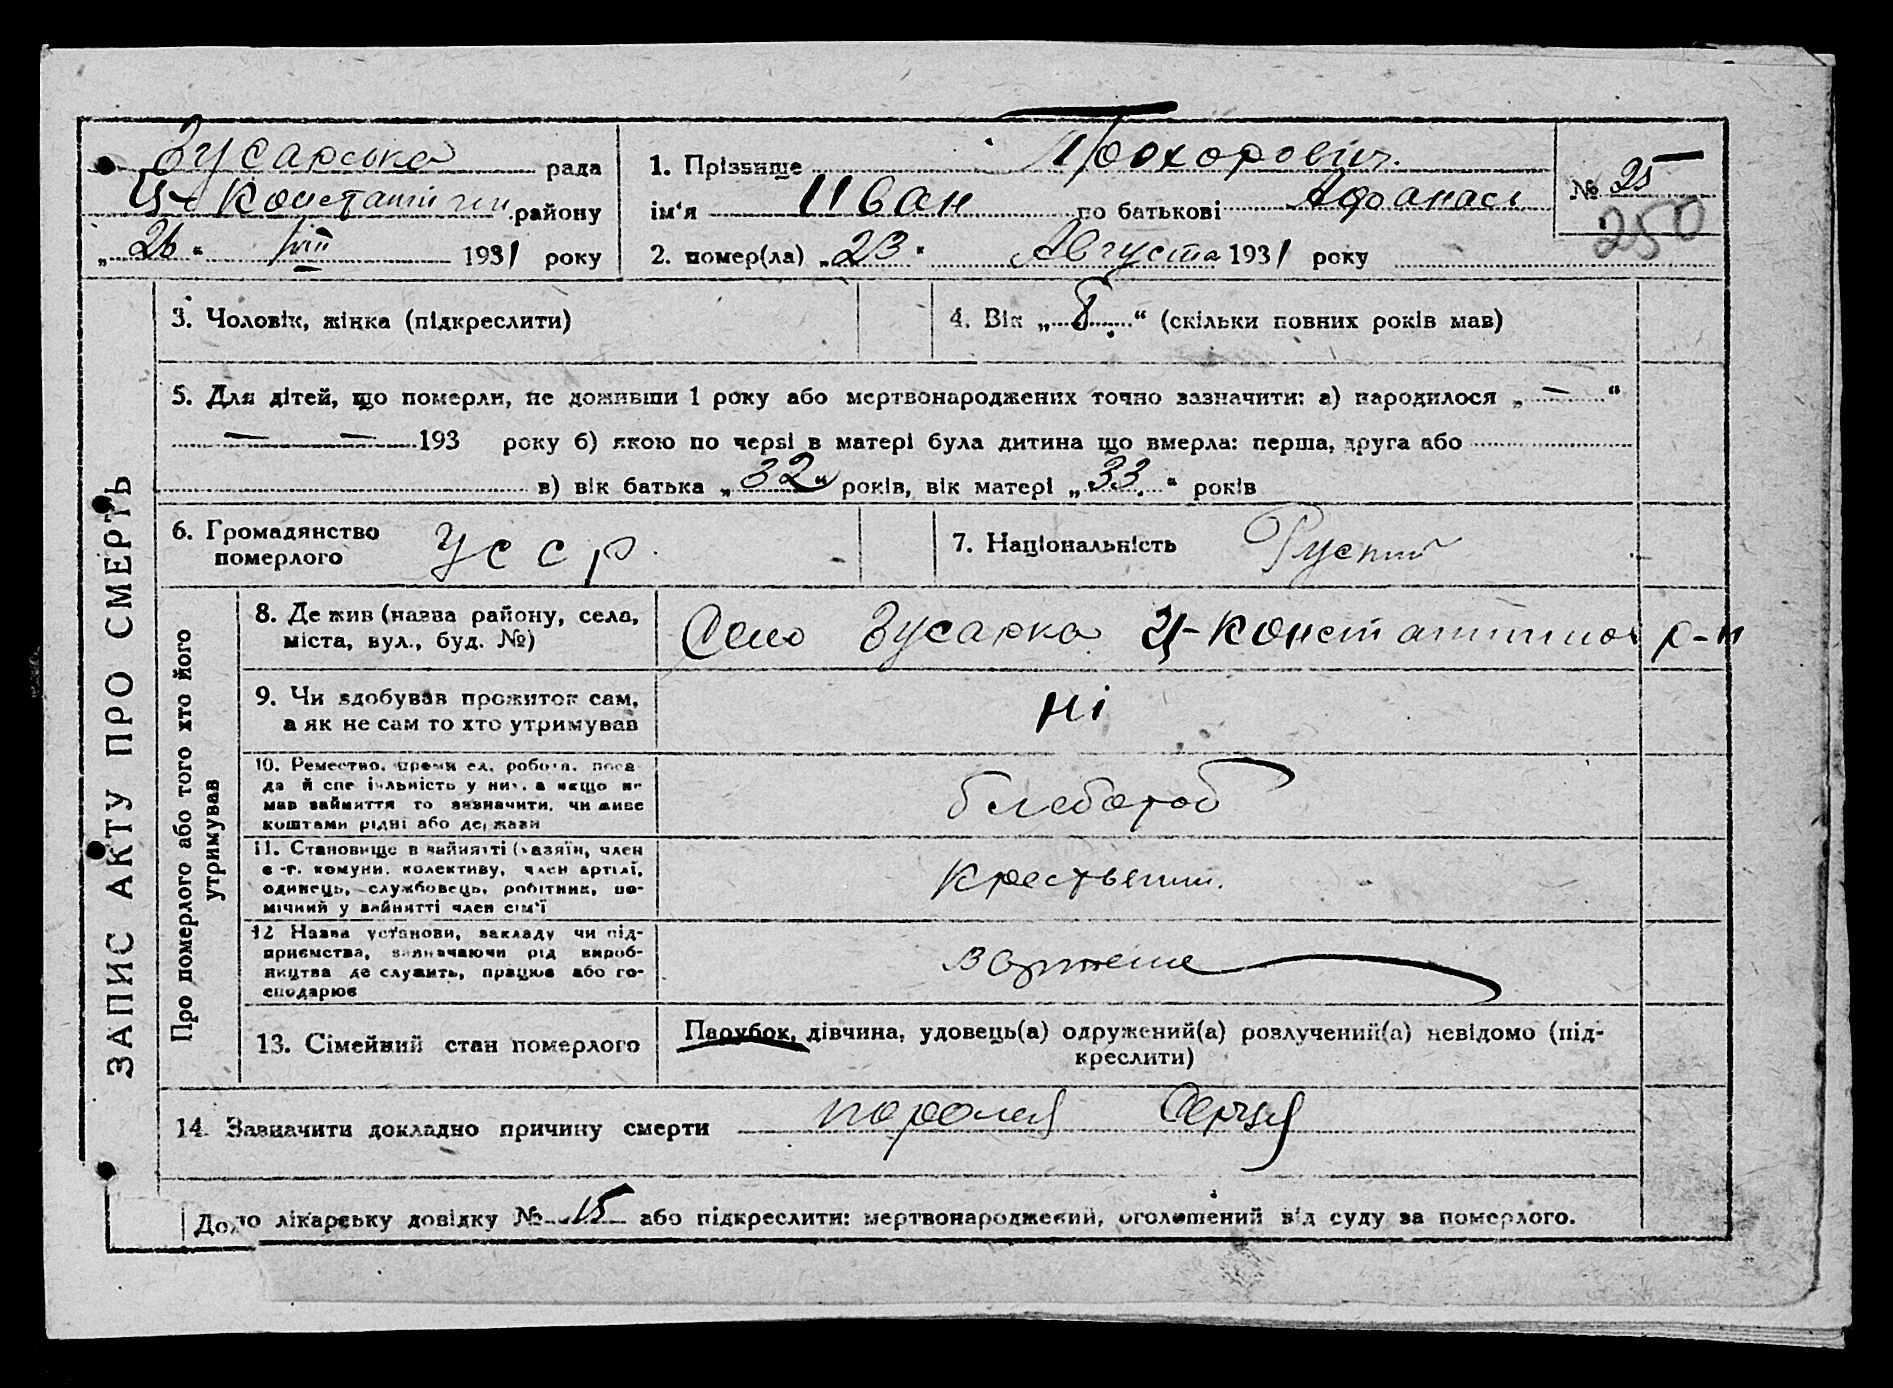 Зусарська рада
Ц-Константин району
„26“ VIII 1931 року
1. Прізвище Прохорович.
ім'я Иван по батькові Афанась
2. помер(ла) „23“ Августа 1931 року
№ 25
250
3. Чоловік, жінка (підкреслити)
4. Вік „ “ (скільки повних років мав)
5. Для дітей, що померли, не доживши 1 року або мертвонароджених точно зазначити: а) народилося „—“
— — 193 року б) якою по черзі в матері була дитина що вмерла: перша, друга або
в) вік батька „32“ років, вік матері „33“ років
6. Громадянство
померлого
УССР.
7. Національність
ЗАПИС АКТУ ПРО СМЕРТЬ
Про померлого або того хто його
утримував
8. Де жив (назва району, села,
міста, вул., буд. №)
Село Зусарка Ц-Константинов р-н
9. Чи здобував прожиток сам,
а як не сам то хто утримував
Ні
10. Ремество, робота, поса-
да й спеціяльність у ній, а якщо не
мав зайняття то зазначити, чи живе
коштами рідні або держави
11. Становище в зайнятті (хазяїн, член
с.-г. комуни, колективу, член артілі,
одинець, службовець, робітник, по-
мічний у зайнятті член сім'ї
12 Назва установи, закладу чи під-
приємства, зазначаючи рід вироб-
ництва де служить, працює або го-
сподарює
13. Сімейний стан померлого
Парубок, дівчина, удовець(а) одружений(а) розлучений(а) невідомо (під-
креслити)
14. Зазначити докладно причину смерти
До лікарську довідку № 15 або підкреслити: мертвонароджений, оголошений від суду за померлого.